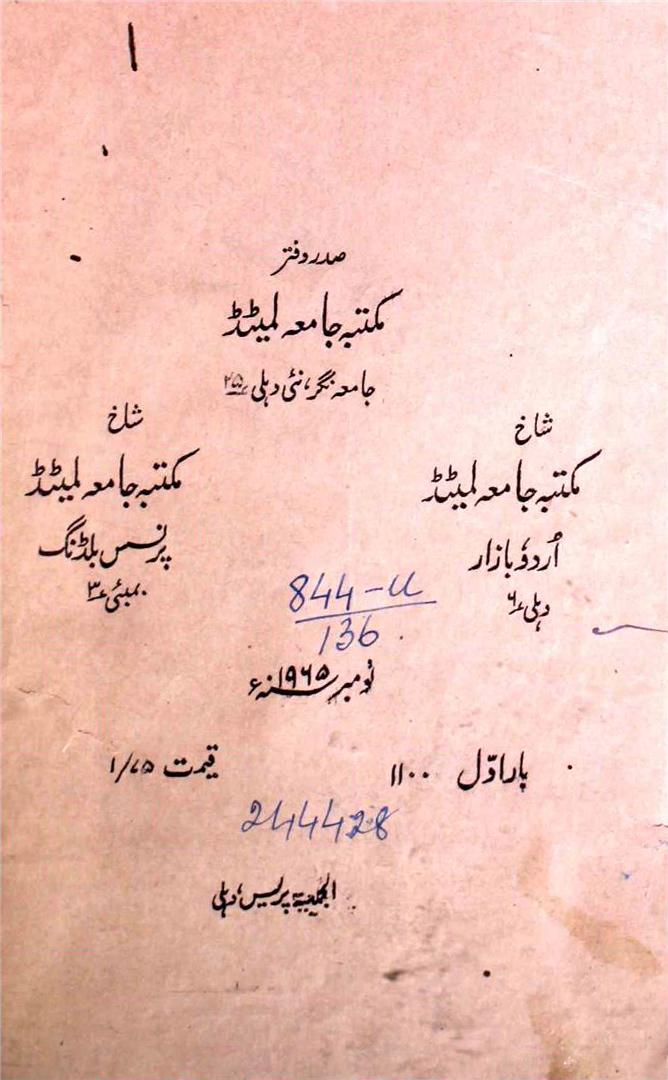 صدر دفتر
مکتبہ جامعہ لمیٹڈ
جامعہ نگر، نئی دہلی ۲۵
شاخ
مکتبہ جامعہ لمیٹڈ
اُردو بازار
دہلی ۶
شاخ
مکتبہ جامعہ لمیٹڈ
پرنسس بلڈنگ
بمبئی ۳
844-U
136
نومبر ۱۹۶۵ء
بار اوّل ۱۱۰۰ قیمت ۱/۷۵
244428
الجمعیۃ پریس، دہلی